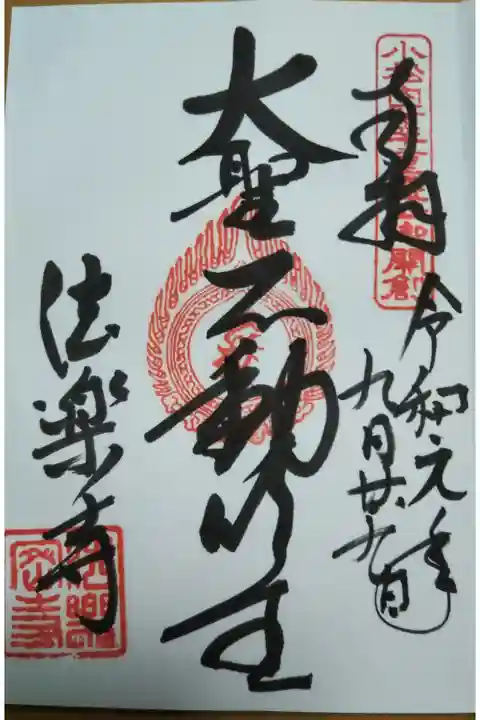 奉拝
令和元年
九月廿九日
大聖不動明王
法楽寺